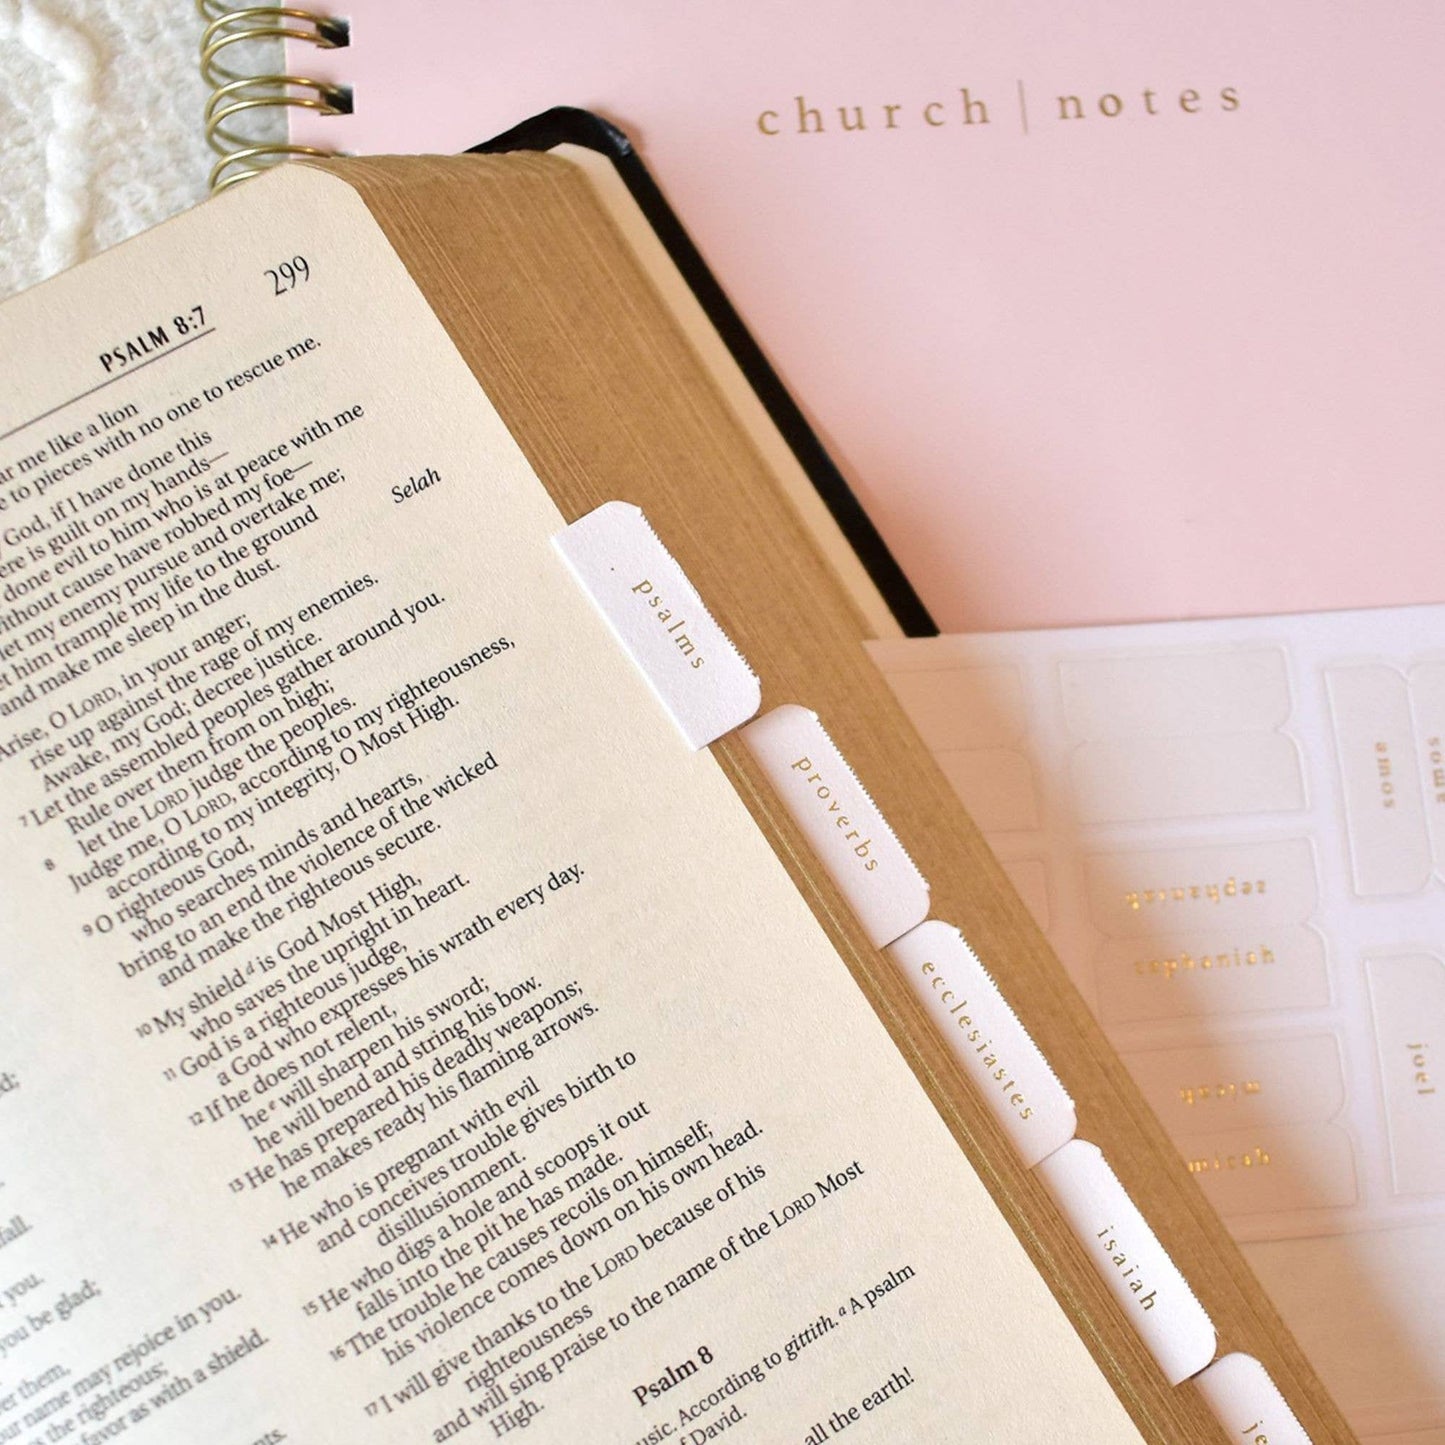 church | notes
299
PSALM 8:7
me like a lion
to pieces with no one to rescue me.
God, if I have done this
is guilt on my hands—
done evil to him who is at peace with me
without cause have robbed my foe—
let my enemy pursue and overtake me;
him trample my life to the ground
and make me sleep in the dust.
Selah
Arise, O LORD, in your anger;
rise up against the rage of my enemies.
Awake, my God; decree justice.
7 Let the assembled peoples gather around you.
Rule over them from on high;
8 let the LORD judge the peoples.
Judge me, O LORD, according to my righteousness,
according to my integrity, O Most High.
9 O righteous God,
who searches minds and hearts,
bring to an end the violence of the wicked
and make the righteous secure.
10 My shield d is God Most High,
who saves the upright in heart.
11 God is a righteous judge,
a God who expresses his wrath every day.
12 If he does not relent,
he e will sharpen his sword;
he will bend and string his bow.
13 He has prepared his deadly weapons;
he makes ready his flaming arrows.
14 He who is pregnant with evil
and conceives trouble gives birth to
disillusionment.
15 He who digs a hole and scoops it out
falls into the pit he has made.
16 The trouble he causes recoils on himself;
his violence comes down on his own head.
17 I will give thanks to the LORD because of his
righteousness
and will sing praise to the name of the LORD Most
High.
Psalm 8
According to gittith. a A psalm
of David.
all the earth!
you.
you be glad;
them.
name may rejoice in you.
the righteous;
favor as with a shield.
psalms
proverbs
ecclesiastes
isaiah
amos
zephaniah
zephaniah
joel
micah
micah